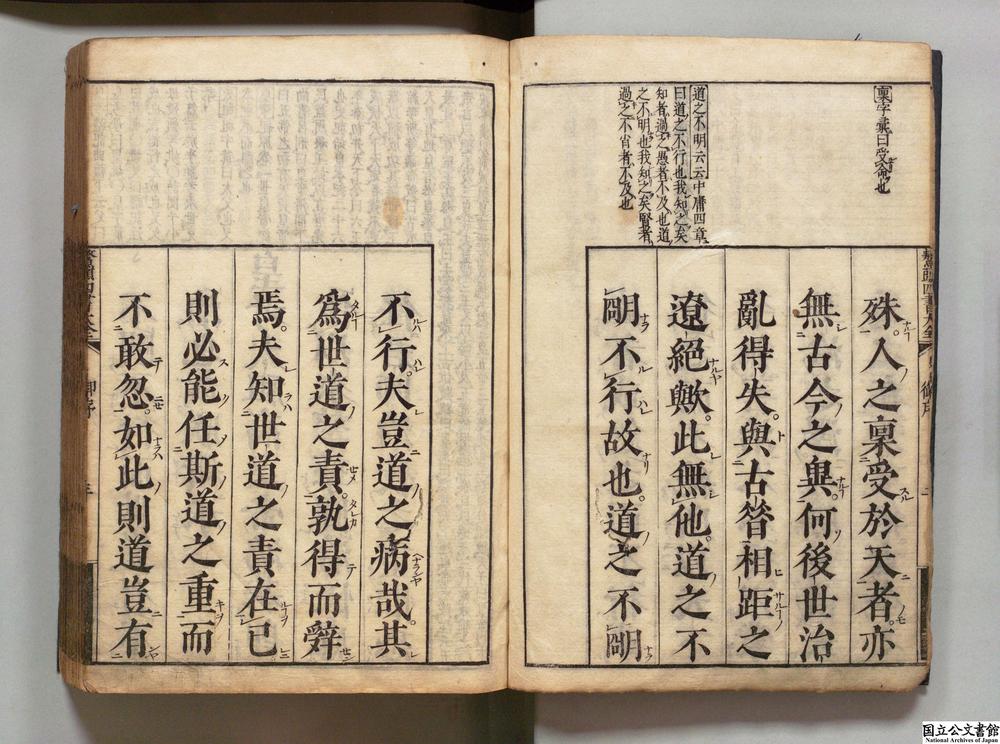 稟字彙曰受命也
道之不明云云中庸四章
曰道之不行也我知之矣
知者過之愚者不及也道
之不明也我知之矣賢者
過之不肖者不及也
殊人之稟受於天者亦
無古今之與何後世治
亂得失與古昔相距之
遼絶歟此無他道之不
明不行故也道之不明
不行夫豈道之病哉其
爲世道之責孰得而辭
焉夫知世道之責在已
則必能任斯道之重而
不敢忽如此則道豈有
御序
国立公文書館
National Archives of Japan